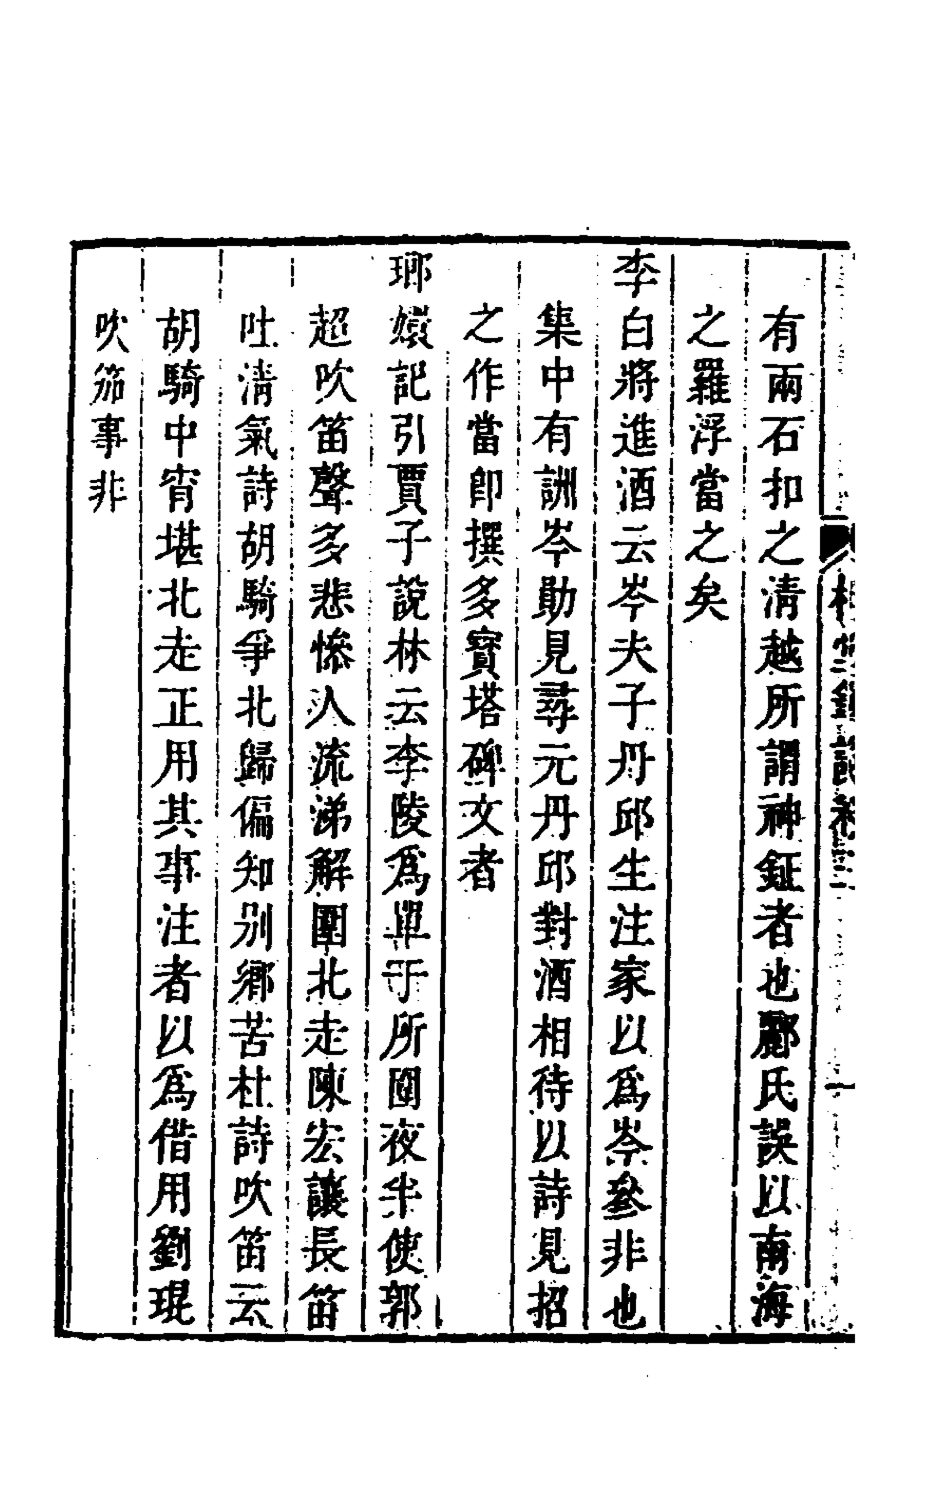 有兩石扣之清越所謂神鉦者也酈氏誤以南海
之羅浮當之矣
李白將進酒云岑夫子丹邱生注家以爲岑參非也
集中有詶岑勛見尋元丹邱對酒相待以詩見招
之作當卽撰多寶塔碑文者
瑯嬛記引賈子說林云李陵爲單于所圍夜半使郭
超吹笛聲多悲慘人流涕解圍北走陳宏讓長笛
吐清氣詩胡騎爭北歸偏知別鄉苦杜詩吹笛云
胡騎中宵堪北走正用其事注者以爲借用劉琨
吹笳事非